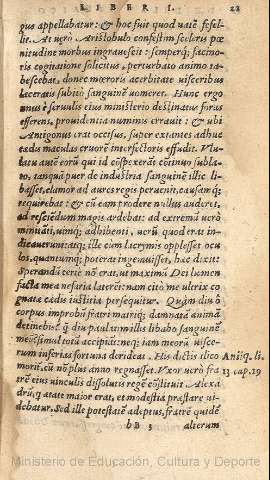 LIBER I. 22
pus appellabatur: & hoc fuit quod vatē fefel-
lit. At verò Aristobulo confestim sceleris pœ
nitudine morbus ingravescit: semperq; facino-
ris cogitatione solicitus, perturbato animo ta-
bescebat, donec mœroris acerbitate visceribus
laceratis subitò sanguinē vomeret. Hunc ergo
unus è servulis eius ministerio destinatus foras
efferens, providentia numinis erravit: & ubi
Antigonus erat occisus, super extantes adhuc
cædis maculas cruorē interfectoris effudit. Vlu-
latu autē eorū qui id cōspexerāt cōtinuò subla-
to, tanquā puer de industria sanguinē illic li-
basset, clamor ad aures regis pervenit, causamq;
requirebat: & cū eam prodere nullus auderet,
ad resciendum magis ardebat: ad extremū verò
minitāti, vimq; adhibenti, verū quod erat in-
dicaverunt: atq; ille cum lacrymis opplesset ocu
los, quantumq; poterat ingemuisset, hæc dixit:
Sperandū certè nō erat, ut maximū Dei lumen
facta mea nefaria laterēt: nam citò me ultrix co
gnatæ cædis iustitia persequitur. Quàm diu ô
corpus improbū fratri matriq; damnatā animā
detinebis? q̄ diu paulatim illis libabo sanguinē
meū? simul totū accipiāt: neq; iam meorū visce-
rum inferias fortuna derideat. His dictis ilico
moritur, cū nō plus anno regnasset. Vxor verò fra
trē eius vinculis dissolutū regē cōstituit Alexā
drū, q̄ ætate maior erat, et modestia præstare vi-
debatur. Sed ille potestatē adeptus, fratrē quidē
bB 5 alterum
Antiq. li.
13. cap. 19
Ministerio de Educación, Cultura y Deporte